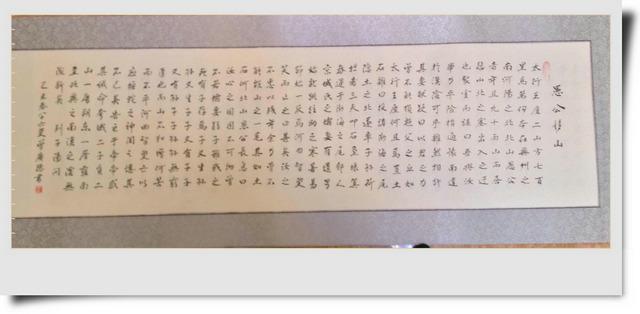 愚公移山
太行王屋二山方七百
里高萬仞本在冀州之
南河陽之北北山愚公
者年且九十面山而居
懲山北之塞出入之迂
也聚室而謀曰吾與汝
畢力平險指通豫南達
於漢陰可乎雜然相許
其妻獻疑曰以君之力
曾不能損魁父之丘如
太行王屋何且焉置土
石雜曰投諸渤海之尾
隱土之北遂率子孫荷
擔者三夫叩石墾壤箕
畚運于渤海之尾鄰人
京城氏之孀妻有遺男
始齔跳往助之寒暑易
節始一反焉河曲智叟
笑而止之曰甚矣汝之
不惠以殘年余力曾不
能毀山之一毛其如土
石何北山愚公長息曰
汝心之固固不可徹曾
不若孀妻弱子雖我之
死有子存焉子又生孫
孫又生子子又有子子
又有孫子子孫孫無窮
匱也而山不加增何苦
而不平河曲智叟亡以
應操蛇之神聞之懼其
不已告之于帝帝感
其誠命夸娥二子負二
山一厝朔東一厝雍南
自此冀之南漢之陰無
隴斷焉 列子湯問
己丑春 書